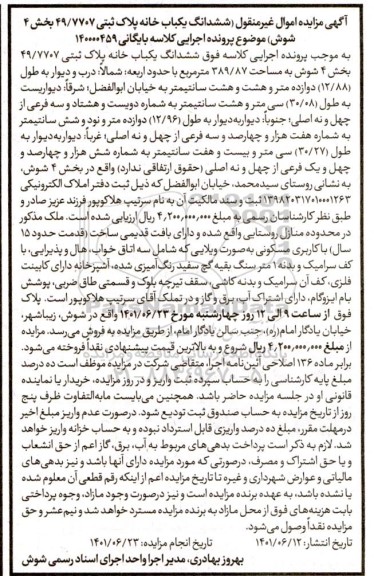 آگهی مزایده اموال غیرمنقول (ششدانگ یکباب خانه پلاک ثبتی ۴۹/۷۷۰۷ بخش ۴
شوش) موضوع پرونده اجرایی کلاسه بایگانی ۱۴۰۰۰۰۴۵۹
به موجب پرونده اجرایی کلاسه فوق ششدانگ یکباب خانه پلاک ثبتی ۴۹/۷۷۰۷
بخش ۴ شوش به مساحت ۳۸۹/۸۷ مترمربع با حدود اربعه: شمالاً: درب و دیوار به طول
(۱۲/۸۸) دوازده متر و هشت و هشت سانتیمتر به خیابان ابوالفضل؛ شرقاً: دیواریست
به طول (۳۰/۰۸) سی متر و هشت سانتیمتر به شماره دویست و هشتاد و سه فرعی از
چهل و نه اصلی؛ جنوباً: دیواربه‌دیوار به طول (۱۲/۹۶) دوازده متر و نود و شش سانتیمتر
به شماره هفت هزار و چهارصد و سه فرعی از چهل و نه اصلی؛ غرباً: دیواربه‌دیوار به
طول (۳۰/۲۷) سی متر و بیست و هفت سانتیمتر به شماره شش هزار و چهارصد و
چهل و یک فرعی از چهل و نه اصلی (حقوق ارتفاقی ندارد) واقع در بخش ۴ شوش،
به نشانی روستای سیدمحمد، خیابان ابوالفضل که ذیل ثبت دفتر املاک الکترونیکی
۱۳۹۸۲۰۳۱۷۰۱۰۰۰۱۲۶۳ ثبت و سند مالکیت آن به نام سرتیپ هلاکوپور فرزند عزیز صادر و
طبق نظر کارشناسان رسمی به مبلغ ۴,۲۰۰,۰۰۰,۰۰۰ ریال ارزیابی شده است. ملک مذکور
در محدوده منازل روستایی واقع شده و دارای بافت قدیمی ساخت (قدمت حدود ۱۵
سال) با کاربری مسکونی به‌صورت ویلایی که شامل سه اتاق خواب، هال و پذیرایی، با
کف سرامیک و بدنه ۱ متر سنگ بقیه گچ سفید رنگ‌آمیزی شده، آشپزخانه دارای کابینت
فلزی، کف آن سرامیک و بدنه کاشی، سقف تیرچه بلوک و قسمتی طاق ضربی، پوشش
بام ایزوگام، دارای اشتراک آب، برق و گاز و در تملک آقای سرتیپ هلاکوپور است. پلاک
فوق از ساعت ۹ الی ۱۲ روز چهارشنبه مورخ ۱۴۰۱/۰۶/۲۳ واقع در شوش، زیباشهر،
خیابان یادگار امام(ره)، جنب سالن یادگار امام، از طریق مزایده به فروش می‌رسد. مزایده
از مبلغ ۴,۲۰۰,۰۰۰,۰۰۰ ریال شروع و به بالاترین قیمت پیشنهادی نقداً فروخته می‌شود.
برابر ماده ۱۳۶ اصلاحی آئین‌نامه اجرا، متقاضی شرکت در مزایده موظف است ده درصد
مبلغ پایه کارشناسی را به حساب سپرده ثبت واریز و در روز مزایده، خریدار یا نماینده
قانونی او در جلسه مزایده حاضر باشد. همچنین می‌بایست مابه‌التفاوت ظرف پنج
روز از تاریخ مزایده به حساب صندوق ثبت تودیع شود. درصورت عدم واریز مبلغ اخیر
درمهلت مقرر، مبلغ ده درصد واریزی قابل استرداد نبوده و به حساب خزانه واریز خواهد
شد. لازم به ذکر است پرداخت بدهی‌های مربوط به آب، برق، گاز اعم از حق انشعاب
و یا حق اشتراک و مصرف، درصورتی که مورد مزایده دارای آنها باشد و نیز بدهی‌های
مالیاتی و عوارض شهرداری و غیره تا تاریخ مزایده اعم از اینکه رقم قطعی آن معلوم شده
یا نشده باشد، به عهده برنده مزایده است و نیز درصورت وجود مازاد، وجوه پرداختی
بابت هزینه‌های فوق از محل مازاد به برنده مزایده مسترد خواهد شد و نیم‌عشر و حق
مزایده نقداً وصول می‌شود.
تاریخ انتشار: ۱۴۰۱/۰۶/۱۲ تاریخ انجام مزایده: ۱۴۰۱/۰۶/۲۳
بهروز بهادری، مدیر اجرا واحد اجرای اسناد رسمی شوش